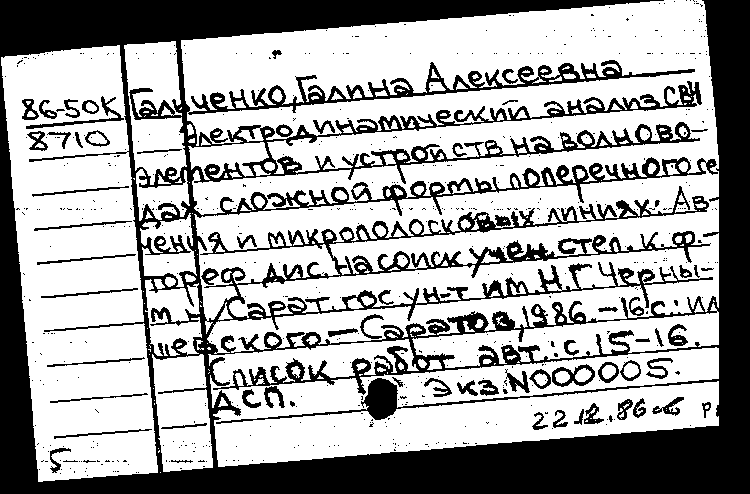 86-50К Гальченко, Галина Алексеевна.
8710 Электродинамический анализ СВЧ
элементов и устройств на волново-
дах сложной формы поперечного се
чения и микрополосковых линиях: Ав-
тореф. дис. на соиск. учен. степ. к. ф.-
м. н. / Сарат. гос ун-т им. Н.Г. Черны-
шевского. — Саратов, 1986. - 16 с.: ил
Список работ авт.: с. 15-16.
ДСП. Экз. N000005.
22.12.86
5